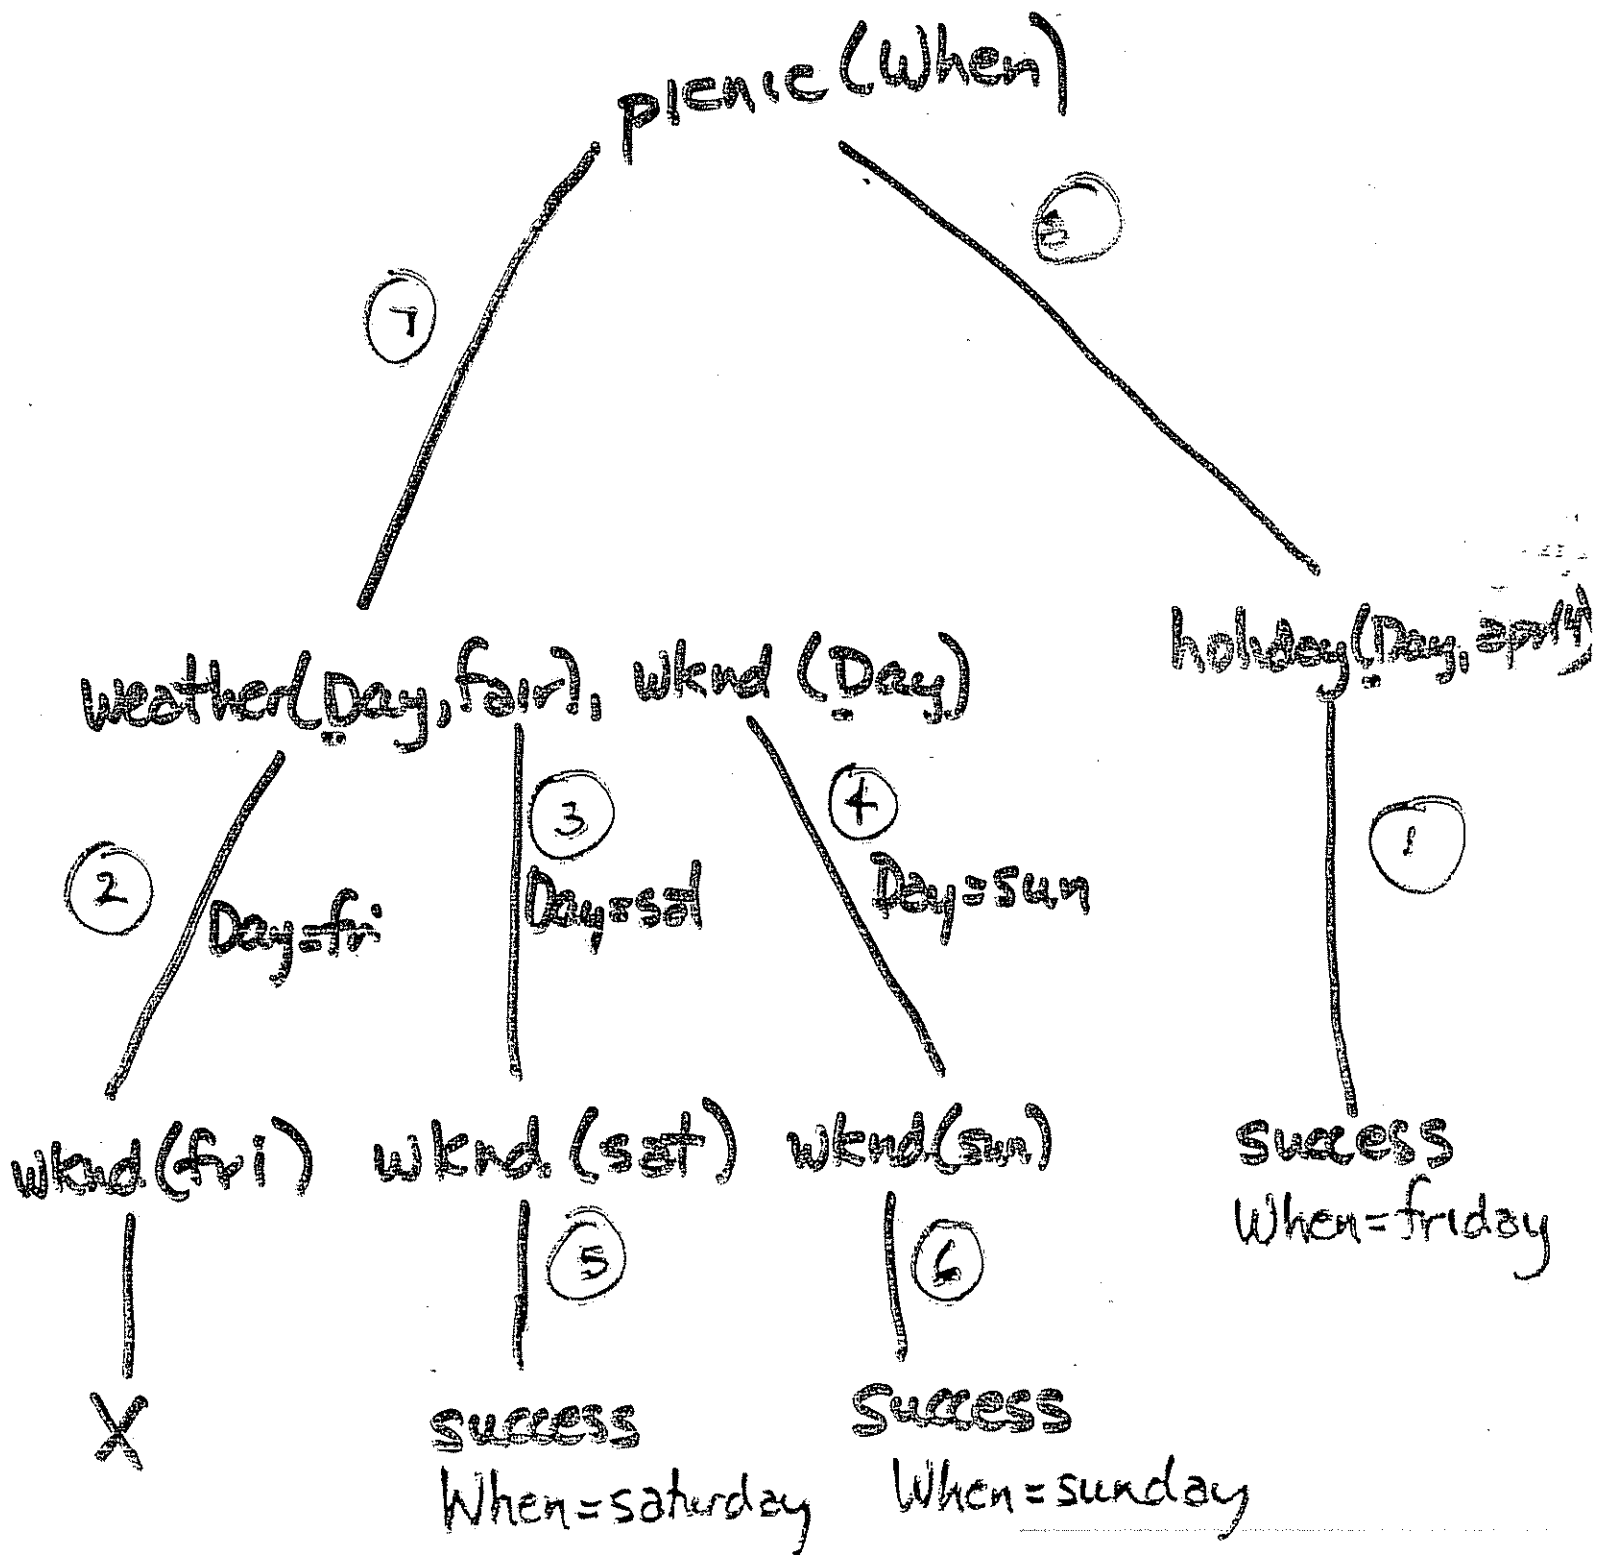 picnic(When)
8
7
weather(Day, fair), wknd(Day)
holiday(Day, april4)
2
3
4
1
Day=fri
Day=sat
Day=sun
wknd(fri)
wknd(sat)
wknd(sun)
success
When=friday
5
6
X
success
When=saturday
success
When=sunday